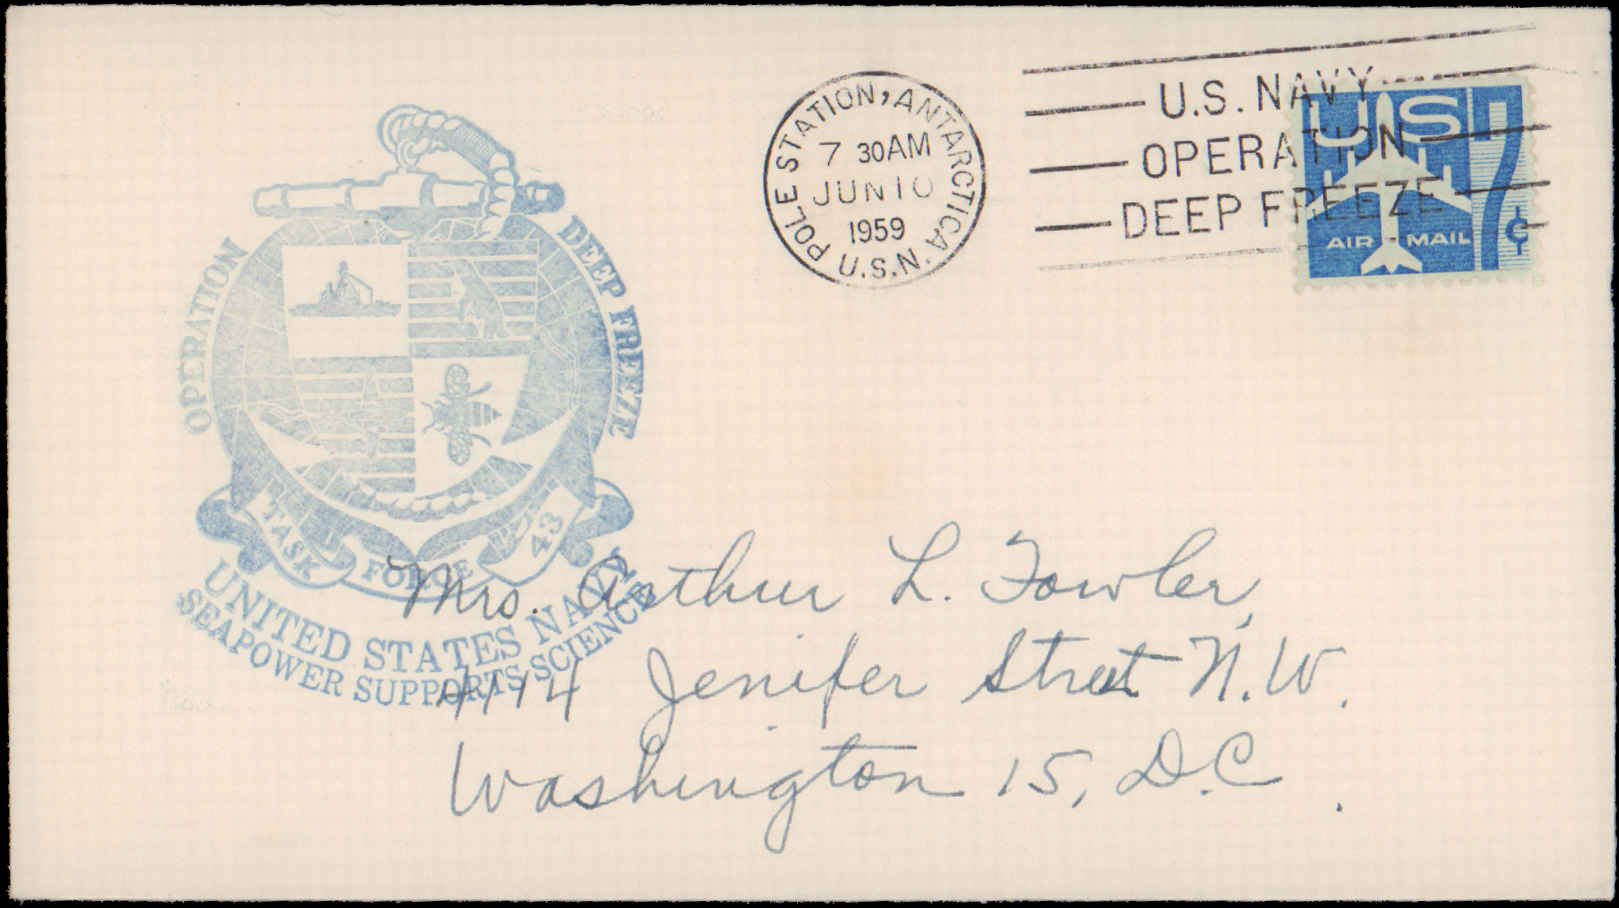 POLE STATION, ANTARCTICA U.S.N.
7 30AM
JUN 10
1959
U.S. NAVY
OPERATION
DEEP FREEZE
US
7¢
AIR-MAIL
OPERATION DEEP FREEZE
TASK FORCE 43
UNITED STATES NAVY
SEAPOWER SUPPORTS SCIENCE
Mrs. Arthur L. Fowler,
4114 Jenifer Street N.W.
Washington 15, D.C.